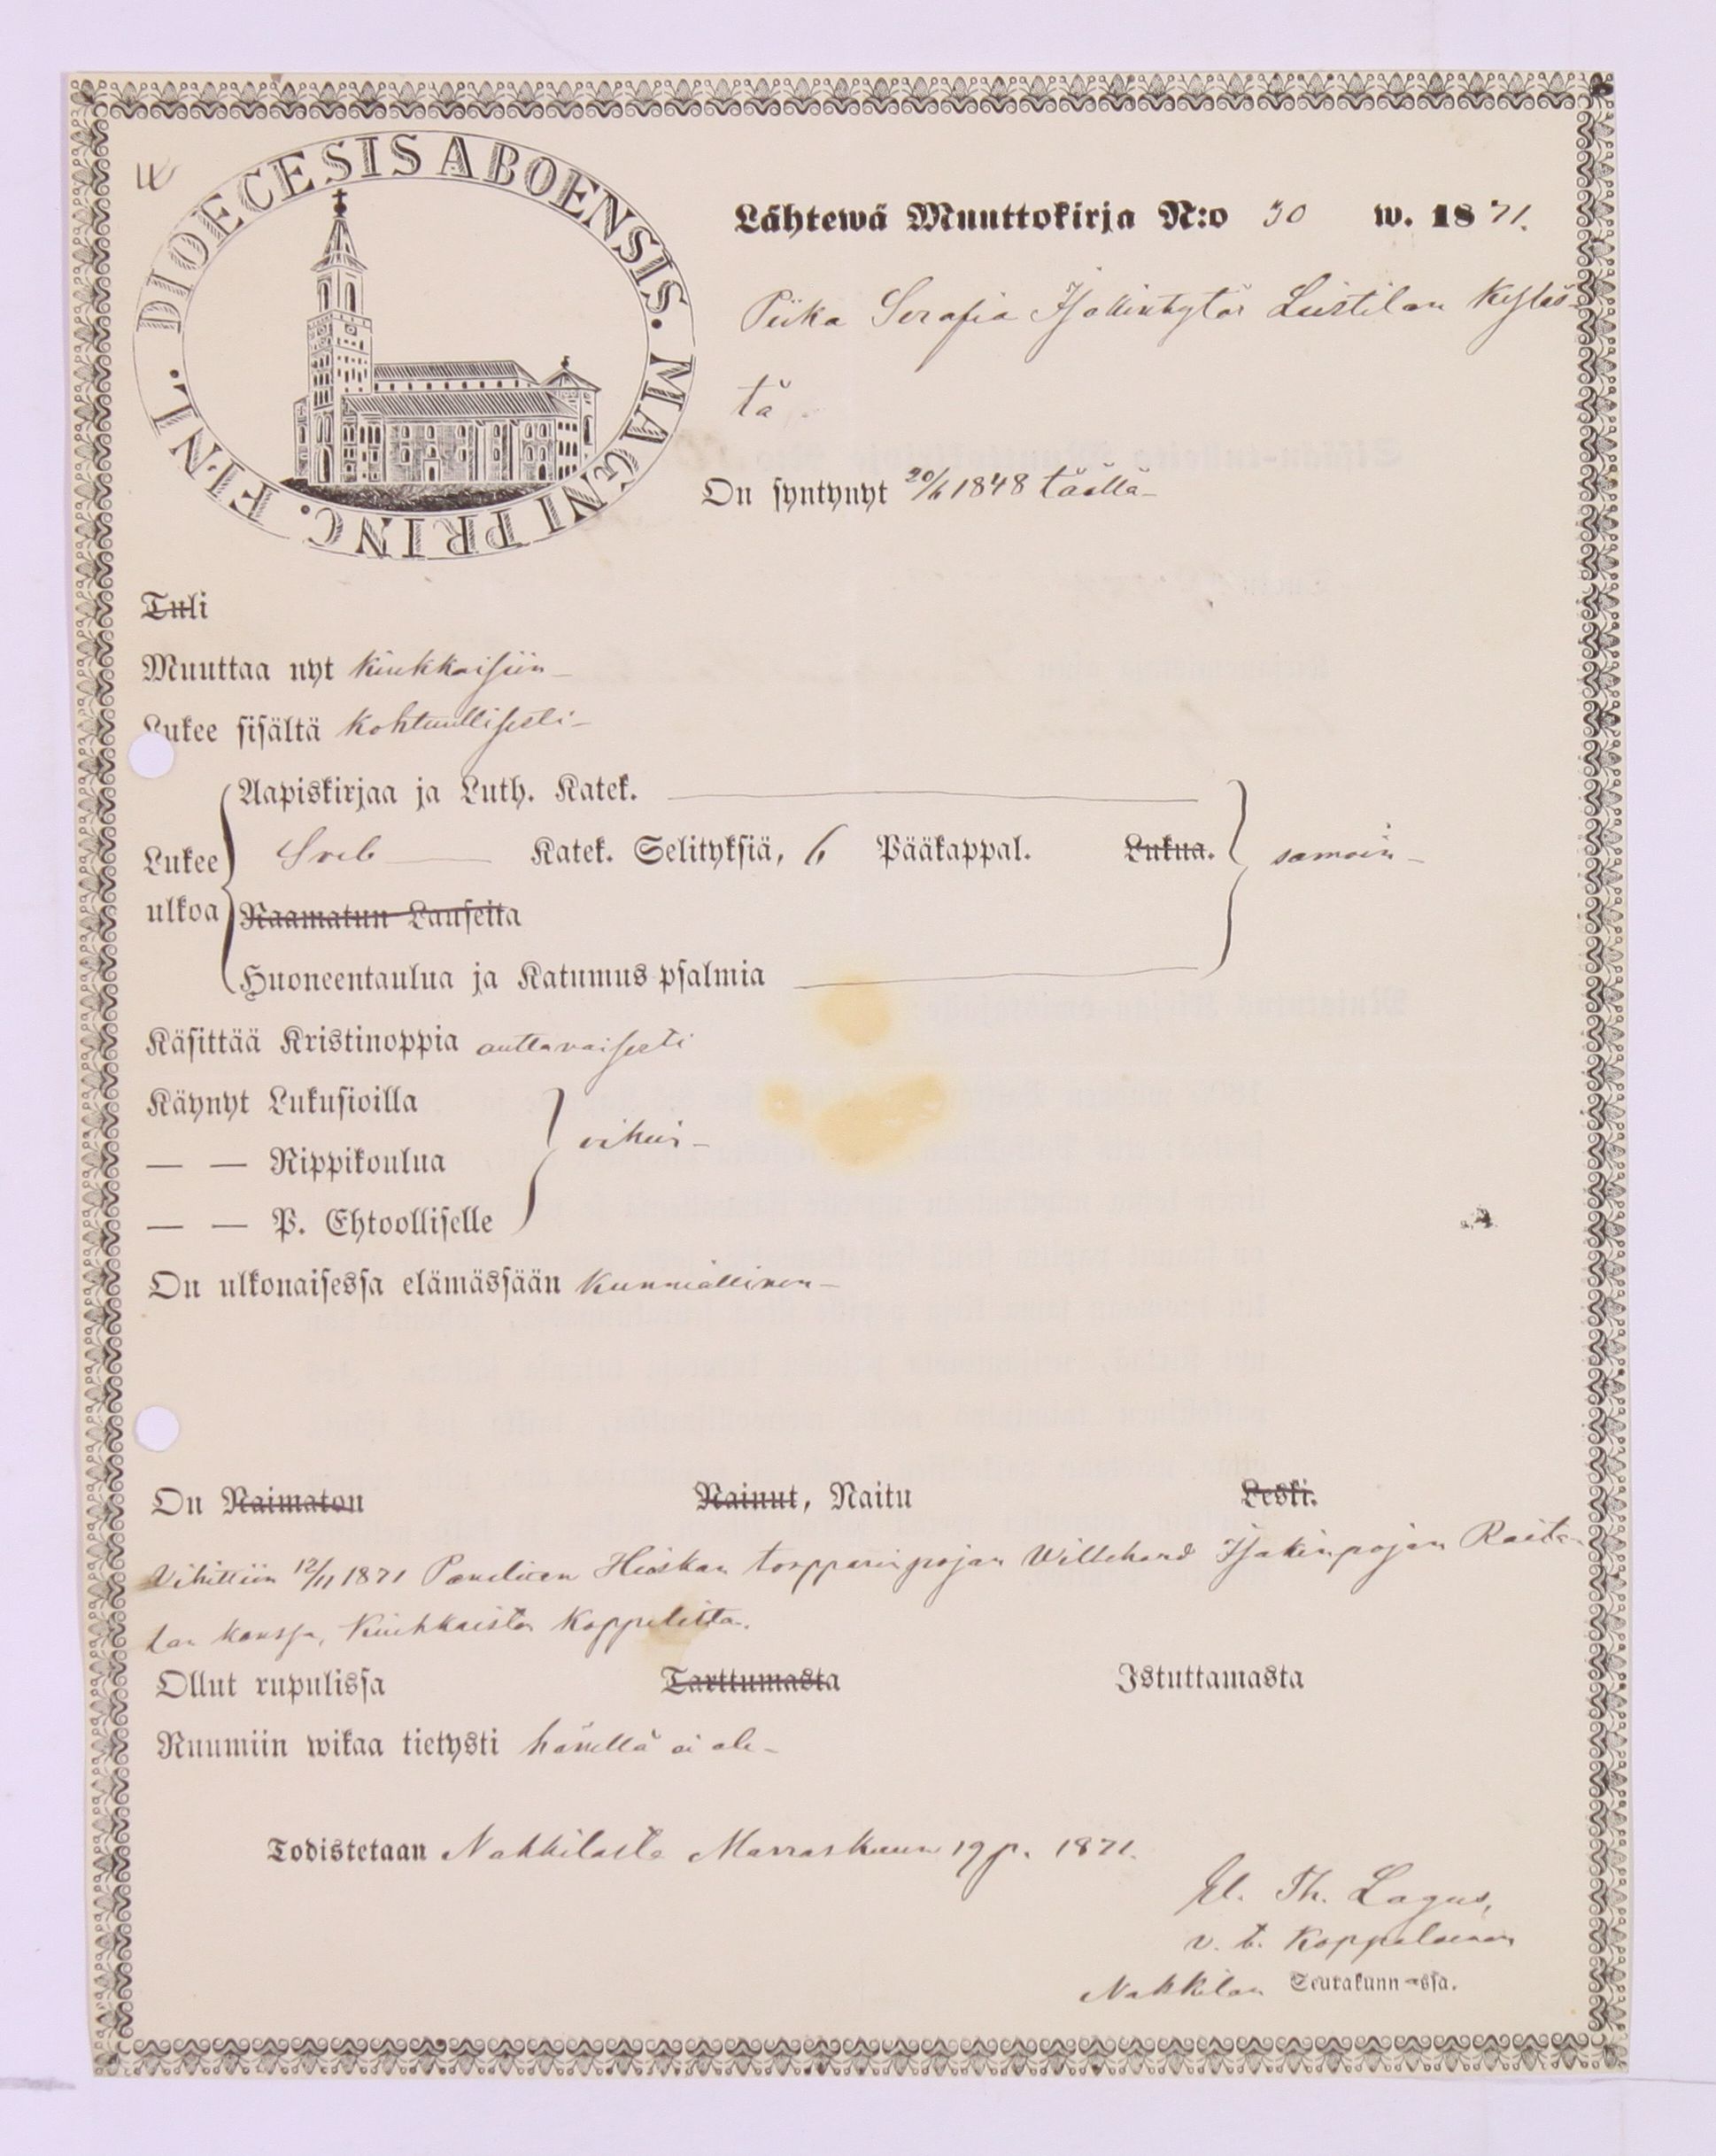 DIOECESIS ABOENSIS. MAGNI PRINC. FINL.
Lähtewä Muuttokirja N:o 30 w. 1871.
Piika Serafia Isakintytär Leistilan kyläs-
tä
On syntynyt 20/6 1848 täällä
Tuli
Muuttaa nyt Kiukkaisiin
Lukee sisältä Kohtuullisesti
Aapiskirjaa ja Luth. Katek.
Lukee ulkoa Sveb Katek. Selityksiä, 6 Pääkappal. Lukua. samoin
Raamatun Lauseita
Huoneentaulua ja Katumus psalmia
Käsittää Kristinoppia auttavaisesti
Käynyt Lukusioilla
— — Rippikoulua
— — P. Ehtoolliselle
On ulkonaisessa elämässään Kunniallinen
On Naimaton Nainut, Naitu Leski.
Vihittiin 12/11 1871 Panelian Heiskan torpparinpojan Willehard Isakinpojan
kanssa, Kiukkaisten Kappelista.
Ollut rupulissa Tarttumasta Istuttamasta
Ruumiin wikaa tietysti hänellä ei ole
Todistetaan Nakkilasta Marraskuun 19 p. 1871.
Th. Lagus,
v. t. Kappalainen
Nakkilan Seurakunn-ssa.